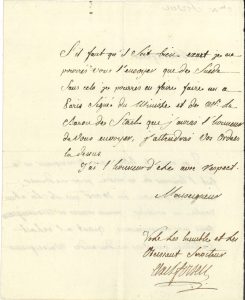 S'il faut qu'il soit bien avant je ne
pourrai vous l'envoyer que des Suede
Sans cela je pourrai en faire faire un a
Paris Signé du Ministre et du
Baron de Stael que j'aurai l'honneur
de Vous envoyer, j'attendrai vos ordres
la dessus
J'ai l'honneur d'etre avec respect.
Monseigneur
Votre tres humble et tres
Obeissant Serviteur